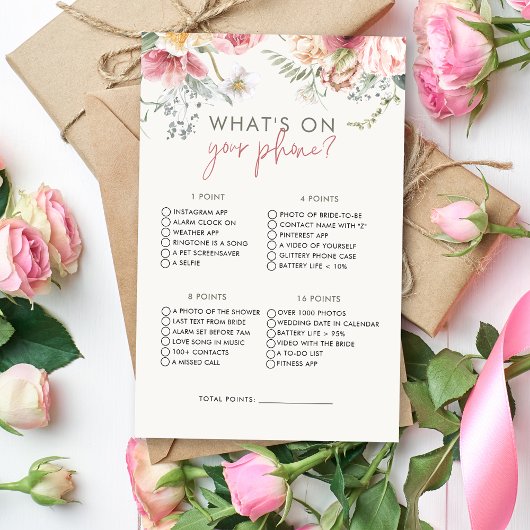 WHAT'S ON
your phone?
1 POINT
INSTAGRAM APP
ALARM CLOCK ON
WEATHER APP
RINGTONE IS A SONG
A PET SCREENSAVER
A SELFIE
4 POINTS
PHOTO OF BRIDE-TO-BE
CONTACT NAME WITH "Z"
PINTEREST APP
A VIDEO OF YOURSELF
GLITTERY PHONE CASE
BATTERY LIFE < 10%
8 POINTS
A PHOTO OF THE SHOWER
LAST TEXT FROM BRIDE
ALARM SET BEFORE 7AM
LOVE SONG IN MUSIC
100+ CONTACTS
A MISSED CALL
16 POINTS
OVER 1000 PHOTOS
WEDDING DATE IN CALENDAR
BATTERY LIFE > 95%
VIDEO WITH THE BRIDE
A TO-DO LIST
FITNESS APP
TOTAL POINTS: ____________